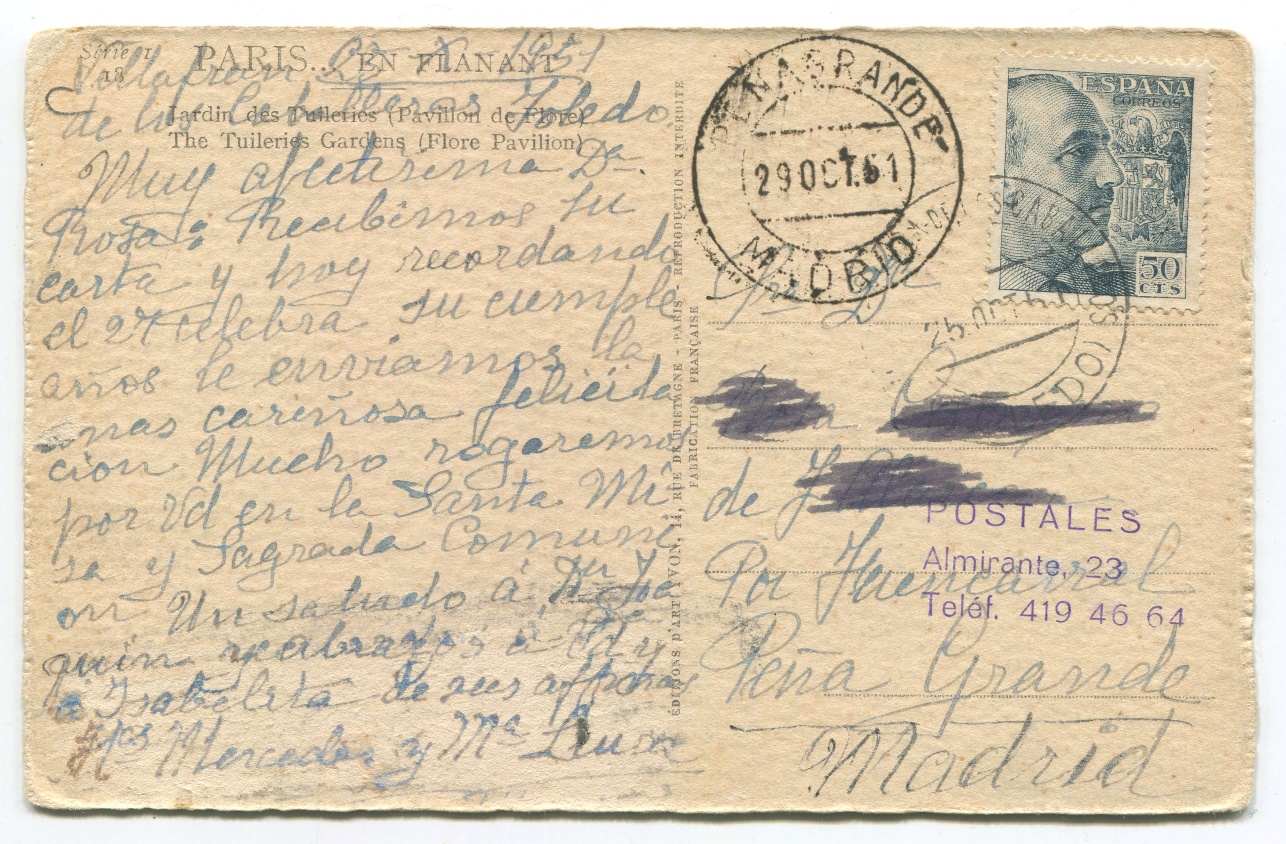 Série 1
18
PARIS... EN FLANANT
Jardin des Tuileries (Pavillon de Flore)
The Tuileries Gardens (Flore Pavilion)
Villafran 1951
de los Caballeros Toledo.
Muy afectisima Dª.
Rosa: Recibimos su
carta y hoy recordando
el 27 celebra su cumple
años le enviamos la
mas cariñosa felicita
cion Mucho rogaremos
por Vd en la Santa Mi
sa y Sagrada Comuni
on Un saludo á Dn Joa
quin y abrazos a Vd y
a Isabelita de sus affmas
Hªs Mercedes y Mª Luisa
ÉDITIONS D'ART YVON, 14, RUE DE BRETAGNE - PARIS - REPRODUCTION INTERDITE
FABRICATION FRANÇAISE
PEÑAGRANDE
29 OCT. 51
MADRID
ESPAÑA
CORREOS
50
CTS
25 OCT
Sra Dª
de
Por Fuencarral
Peña Grande
Madrid
POSTALES
Almirante, 23
Teléf. 419 46 64